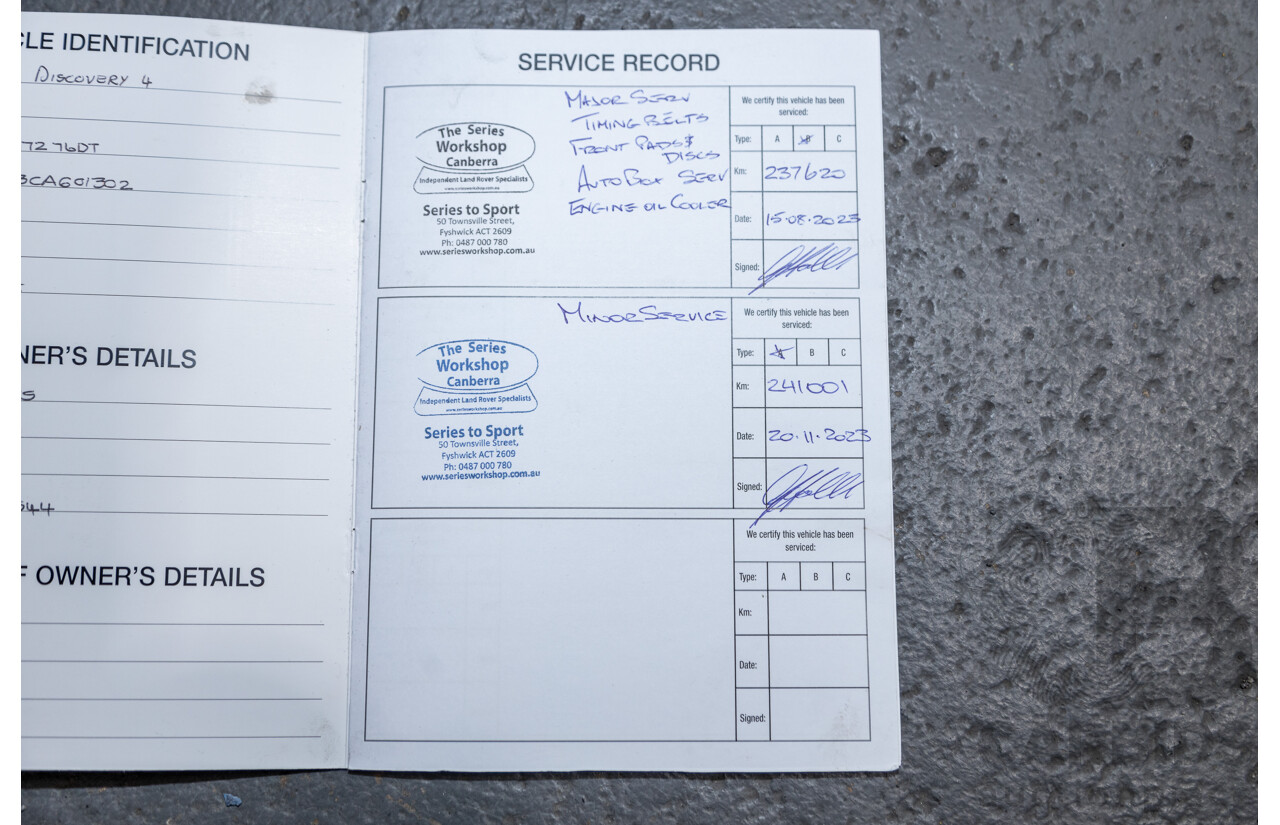 CLE IDENTIFICATION
DISCOVERY 4
7276DT
3CA601302
NER'S DETAILS
S
544
F OWNER'S DETAILS
SERVICE RECORD
The Series
Workshop
Canberra
Independent Land Rover Specialists
www.seriesworkshop.com.au
Series to Sport
50 Townsville Street,
Fyshwick ACT 2609
Ph: 0487 000 780
www.seriesworkshop.com.au
MAJOR SERV
TIMING BELTS
FRONT PADS &
DISCS
AUTOBOX SERV
ENGINE OIL COOLER
We certify this vehicle has been
serviced:
Type: A B C
Km: 237620
Date: 15.08.2023
Signed:
The Series
Workshop
Canberra
Independent Land Rover Specialists
www.seriesworkshop.com.au
Series to Sport
50 Townsville Street,
Fyshwick ACT 2609
Ph: 0487 000 780
www.seriesworkshop.com.au
MINOR SERVICE
We certify this vehicle has been
serviced:
Type: A B C
Km: 241001
Date: 20.11.2023
Signed:
We certify this vehicle has been
serviced:
Type: A B C
Km:
Date:
Signed: